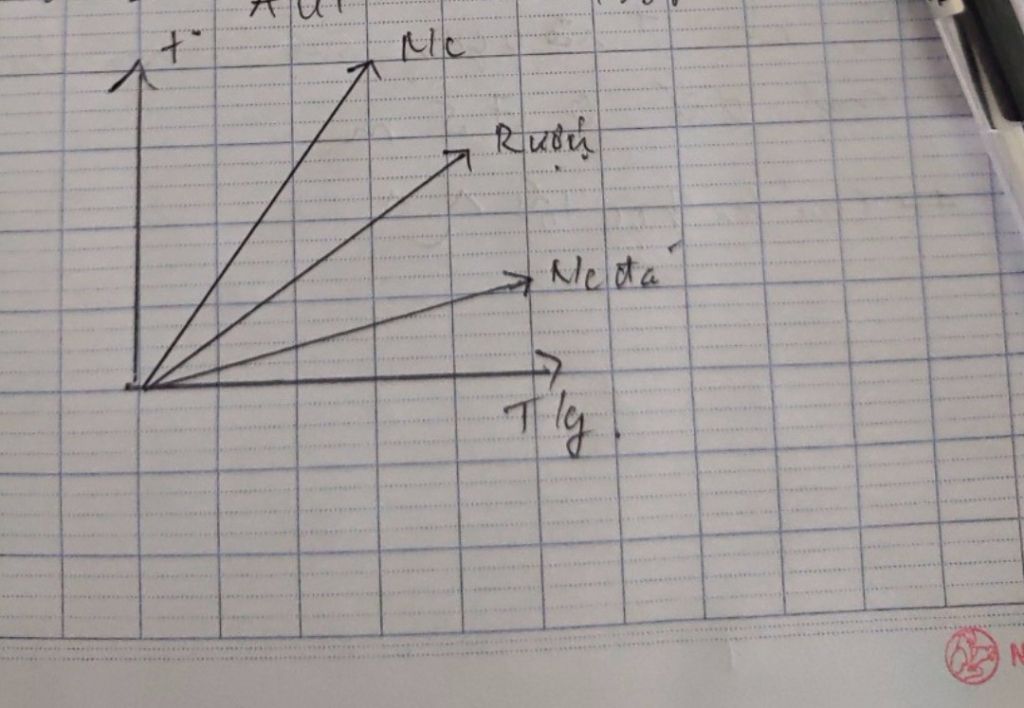 t°
N/c
Rượu
N/c đá
T/g